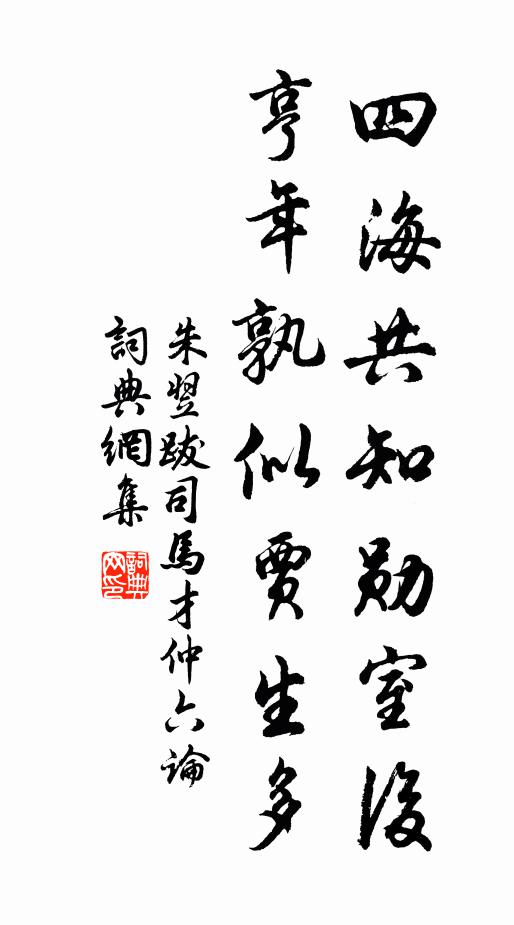 四海共知勋室後
亨年孰似賈生多
朱翌跋司馬才仲六論
詞典網集
詞典网印